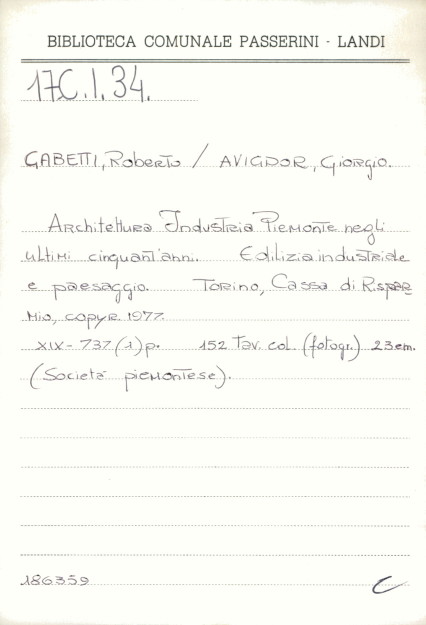 BIBLIOTECA COMUNALE PASSERINI - LANDI
17C.I.34.
GABETTI, Roberto / AVIGDOR, Giorgio.
Architettura Industria Piemonte negli
ultimi cinquant'anni. Edilizia industriale
e paesaggio. Torino, Cassa di Rispar
mio, copyr. 1977.
XIX-737(1)p. 152 Tav. col. (fotogr.) 23cm.
(Società piemontese).
186359 C